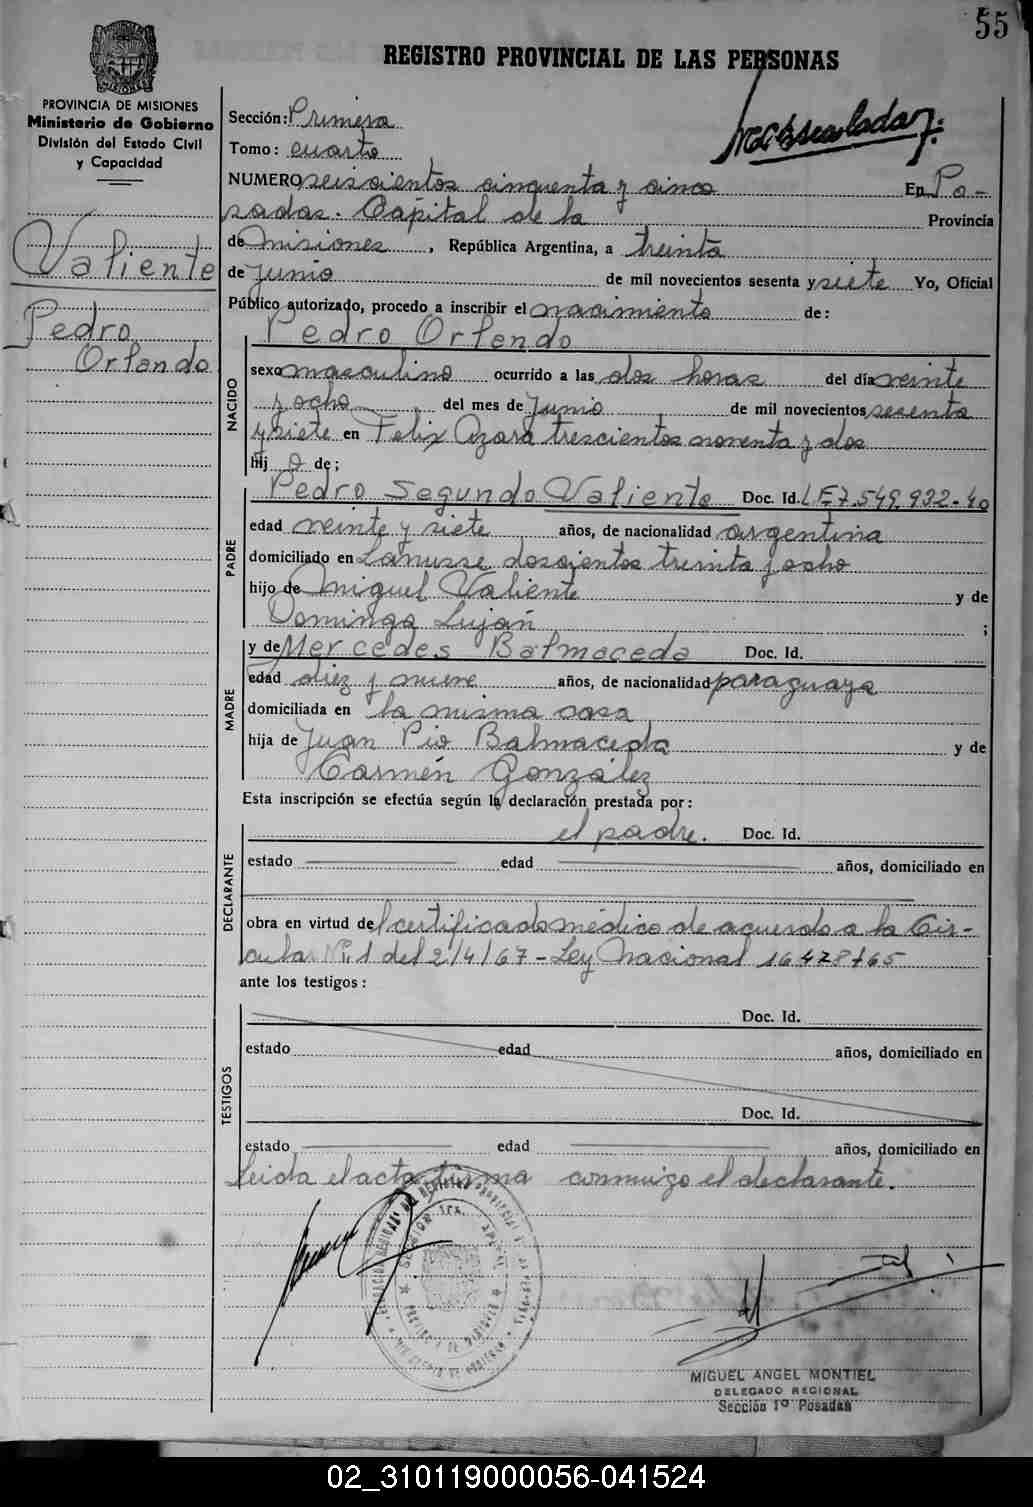 55
REGISTRO PROVINCIAL DE LAS PERSONAS
PROVINCIA DE MISIONES
Ministerio de Gobierno
División del Estado Civil
y Capacidad
Valiente
Pedro
Orlando
Sección: Primera
Tomo: cuarto
NUMERO seiscientos cinquenta y cinco En Po-
sadas. Capital de la Provincia
de Misiones, República Argentina, a treinta
de Junio de mil novecientos sesenta y siete Yo, Oficial
Público autorizado, procedo a inscribir el nacimiento de:
Pedro Orlando
NACIDO
sexo masculino ocurrido a las dos horas del día veinte
y ocho del mes de Junio de mil novecientos sesenta
y siete en Felix Azara trescientos noventa y dos
hij o de;
PADRE
Pedro Segundo Valiente Doc. Id. L.E 7.549.932-40
edad veinte y siete años, de nacionalidad argentina
domiciliado en Lanusse doscientos treinta y ocho
hijo de Miguel Valiente y de
Dominga Luján ;
MADRE
y de Mercedes Balmaceda Doc. Id.
edad diez y nueve años, de nacionalidad paraguaya
domiciliada en la misma casa
hija de Juan Pio Balmaceda y de
Carmén González
Esta inscripción se efectúa según la declaración prestada por:
DECLARANTE
el padre. Doc. Id.
estado edad años, domiciliado en
obra en virtud del certificado médico de acuerdo a la Cir-
cular Nº 1 del 2/4/67 - Ley Nacional 16478/65
ante los testigos:
TESTIGOS
Doc. Id.
estado edad años, domiciliado en
Doc. Id.
estado edad años, domiciliado en
Leida el acta firma conmigo el declarante.
MIGUEL ANGEL MONTIEL
DELEGADO REGIONAL
Sección 1º Posadas
02_310119000056-041524